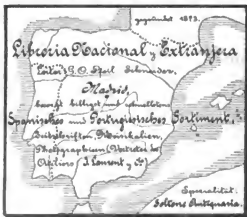 gegründet 1873.
Libreria Nacional y Extranjera
Madrid,
besorgt billigst und schnellstens
Spanisches und Portugiesisches Sortiment,
Zeitschriften, Musikalien,
Photographien (Vertreter der
J. Laurent y Cº)
Specialität:
Seltene Antiquaria.